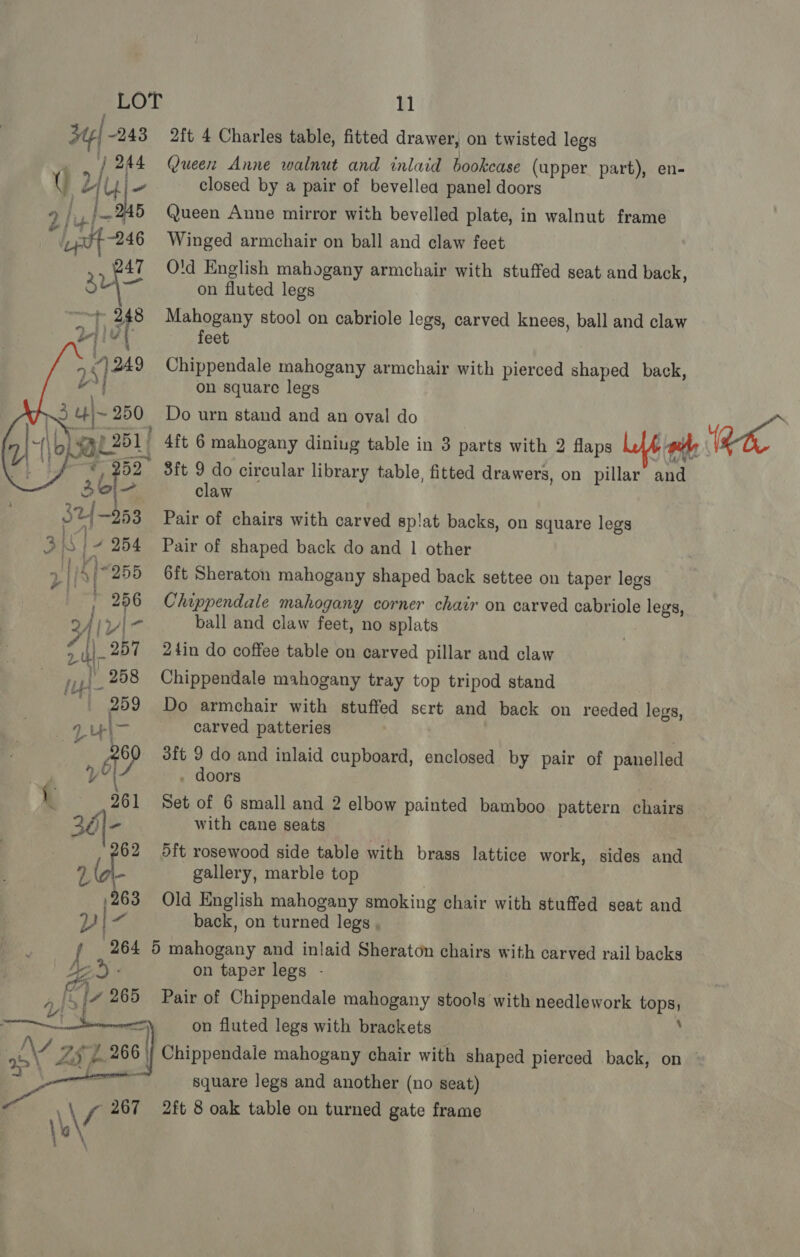 LOT 11
243 2ft 4 Charles table, fitted drawer, on twisted legs
244 Queen Anne walnut and inlaid bookcase (upper part), en-
closed by a pair of bevelled panel doors
245 Queen Anne mirror with bevelled plate, in walnut frame
246 Winged armchair on ball and claw feet
247 Old English mahogany armchair with stuffed seat and back,
on fluted legs
248 Mahogany stool on cabriole legs, carved knees, ball and claw
feet
249 Chippendale mahogany armchair with pierced shaped back,
on square legs
250 Do urn stand and an oval do
251 4ft 6 mahogany dining table in 3 parts with 2 flaps
252 3ft 9 do circular library table, fitted drawers, on pillar and
claw
253 Pair of chairs with carved splat backs, on square legs
254 Pair of shaped back do and 1 other
255 6ft Sheraton mahogany shaped back settee on taper legs
256 Chippendale mahogany corner chair on carved cabriole legs,
ball and claw feet, no splats
257 24in do coffee table on carved pillar and claw
258 Chippendale mahogany tray top tripod stand
259 Do armchair with stuffed sert and back on reeded legs,
carved patteries
260 3ft 9 do and inlaid cupboard, enclosed by pair of panelled
doors
261 Set of 6 small and 2 elbow painted bamboo pattern chairs
with cane seats
262 5ft rosewood side table with brass lattice work, sides and
gallery, marble top
263 Old English mahogany smoking chair with stuffed seat and
back, on turned legs
264 5 mahogany and inlaid Sheraton chairs with carved rail backs
on taper legs -
265 Pair of Chippendale mahogany stools with needlework tops,
on fluted legs with brackets
266 Chippendale mahogany chair with shaped pierced back, on
square legs and another (no seat)
267 2ft 8 oak table on turned gate frame